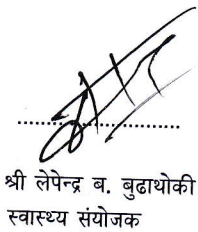 श्री लेपेन्द्र ब. बुढाथोकी
स्वास्थ्य संयोजक